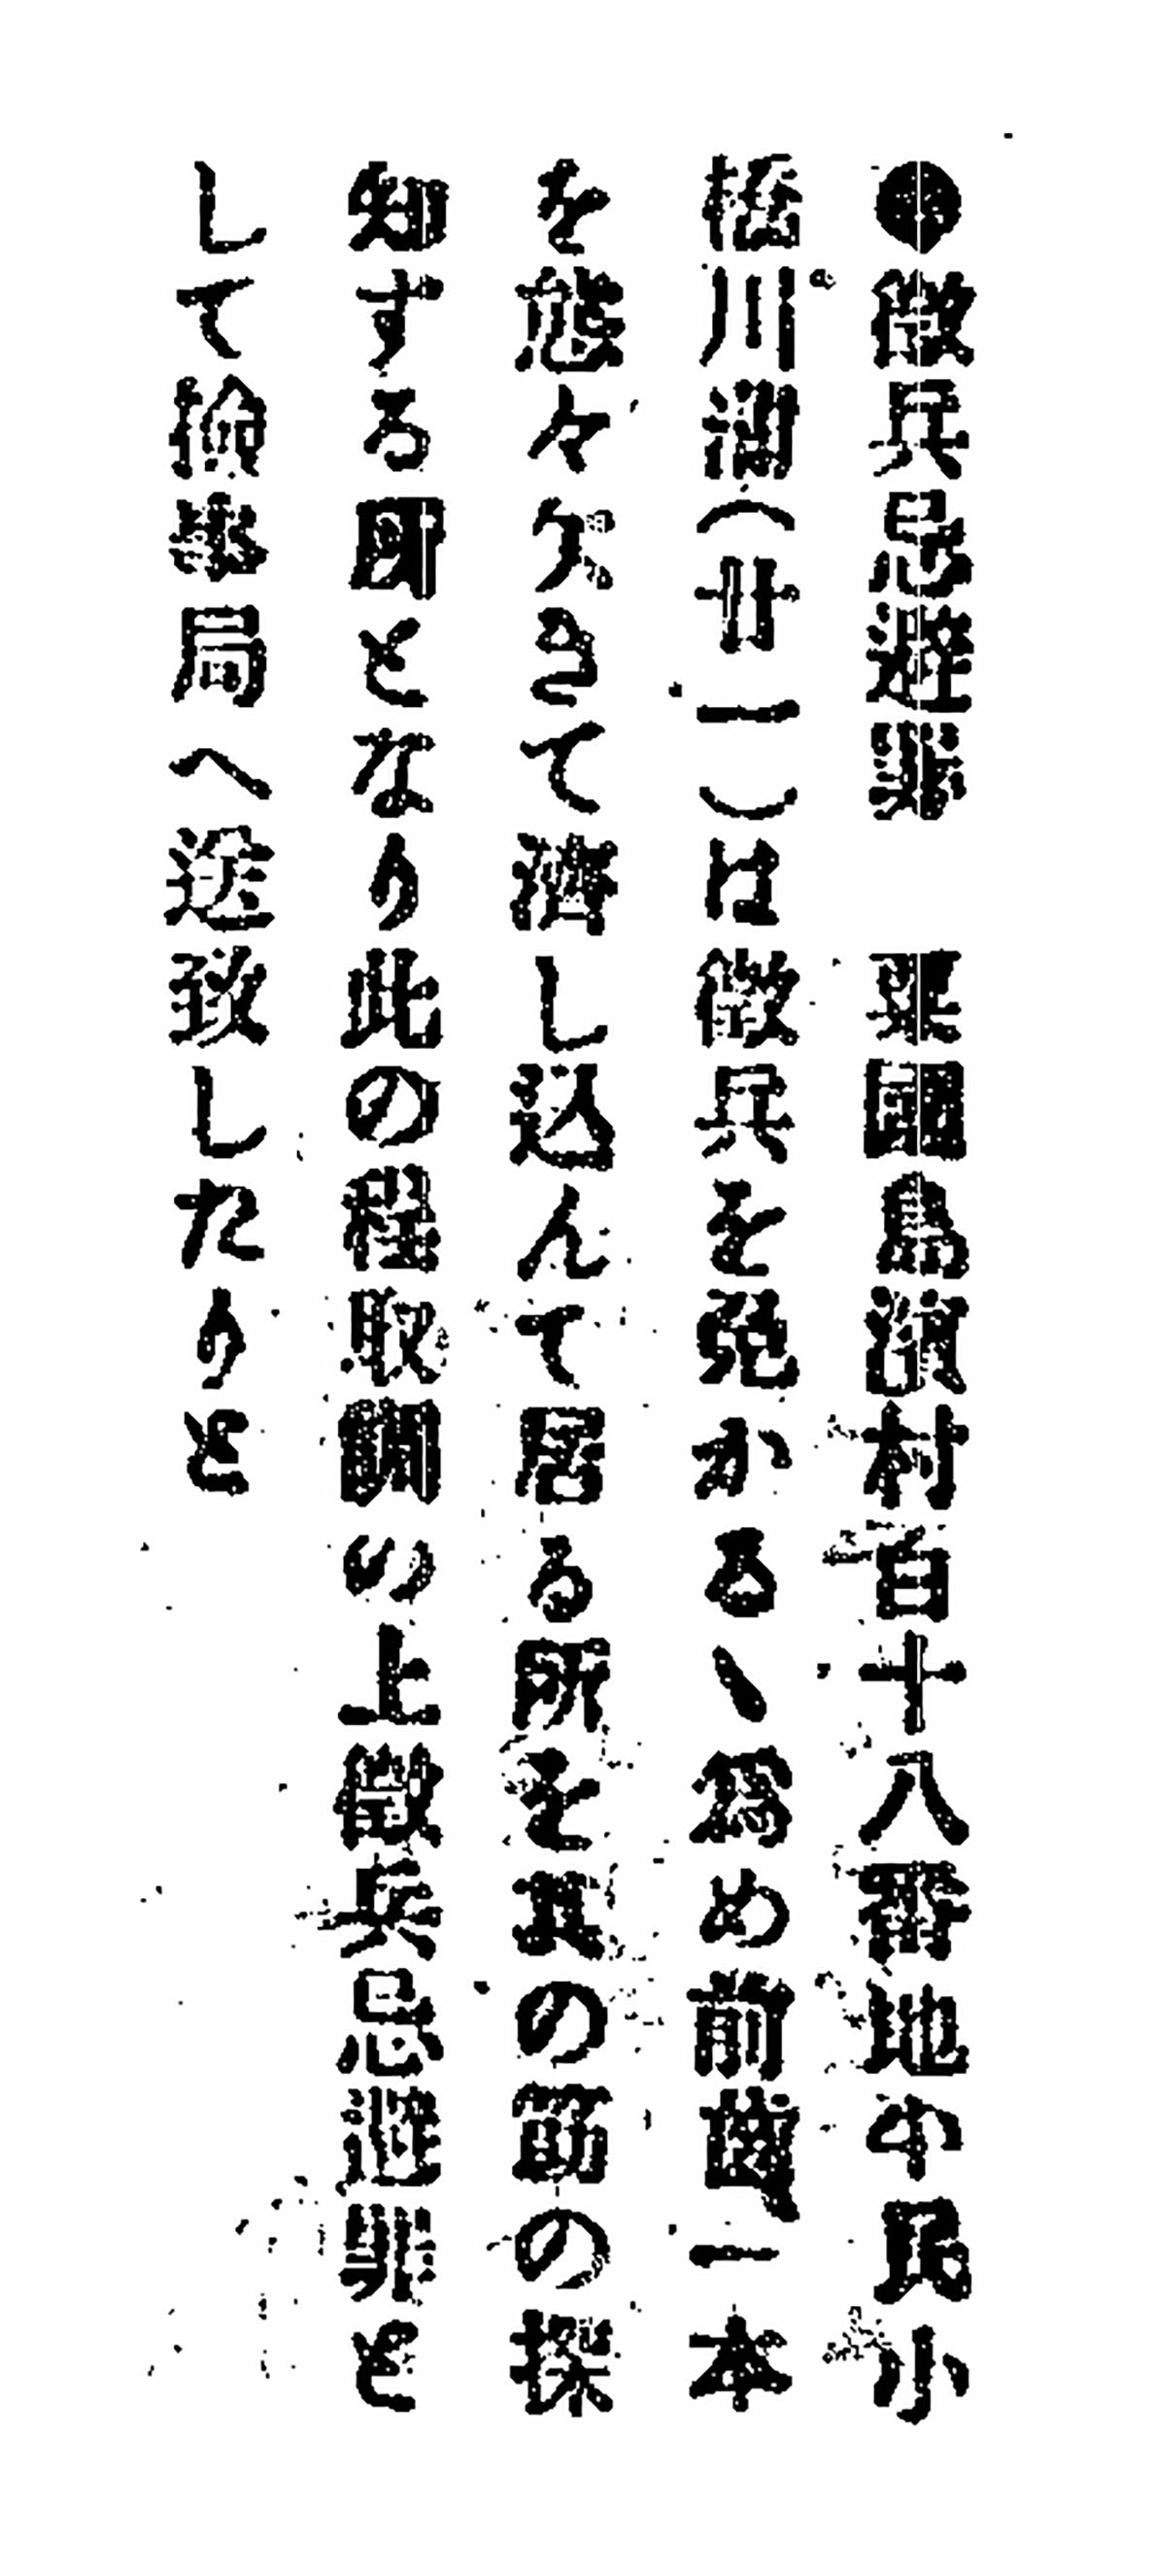 ●徴兵忌避罪　粟國島濱村百十八番地平民小
橋川蒲（廿一）は徴兵を免かるゝ爲め前齒一本
を態々欠きて濟し込んて居る所を其の筋の探
知する所となり此の程取調の上徴兵忌避罪と
して檢事局へ送致したりと